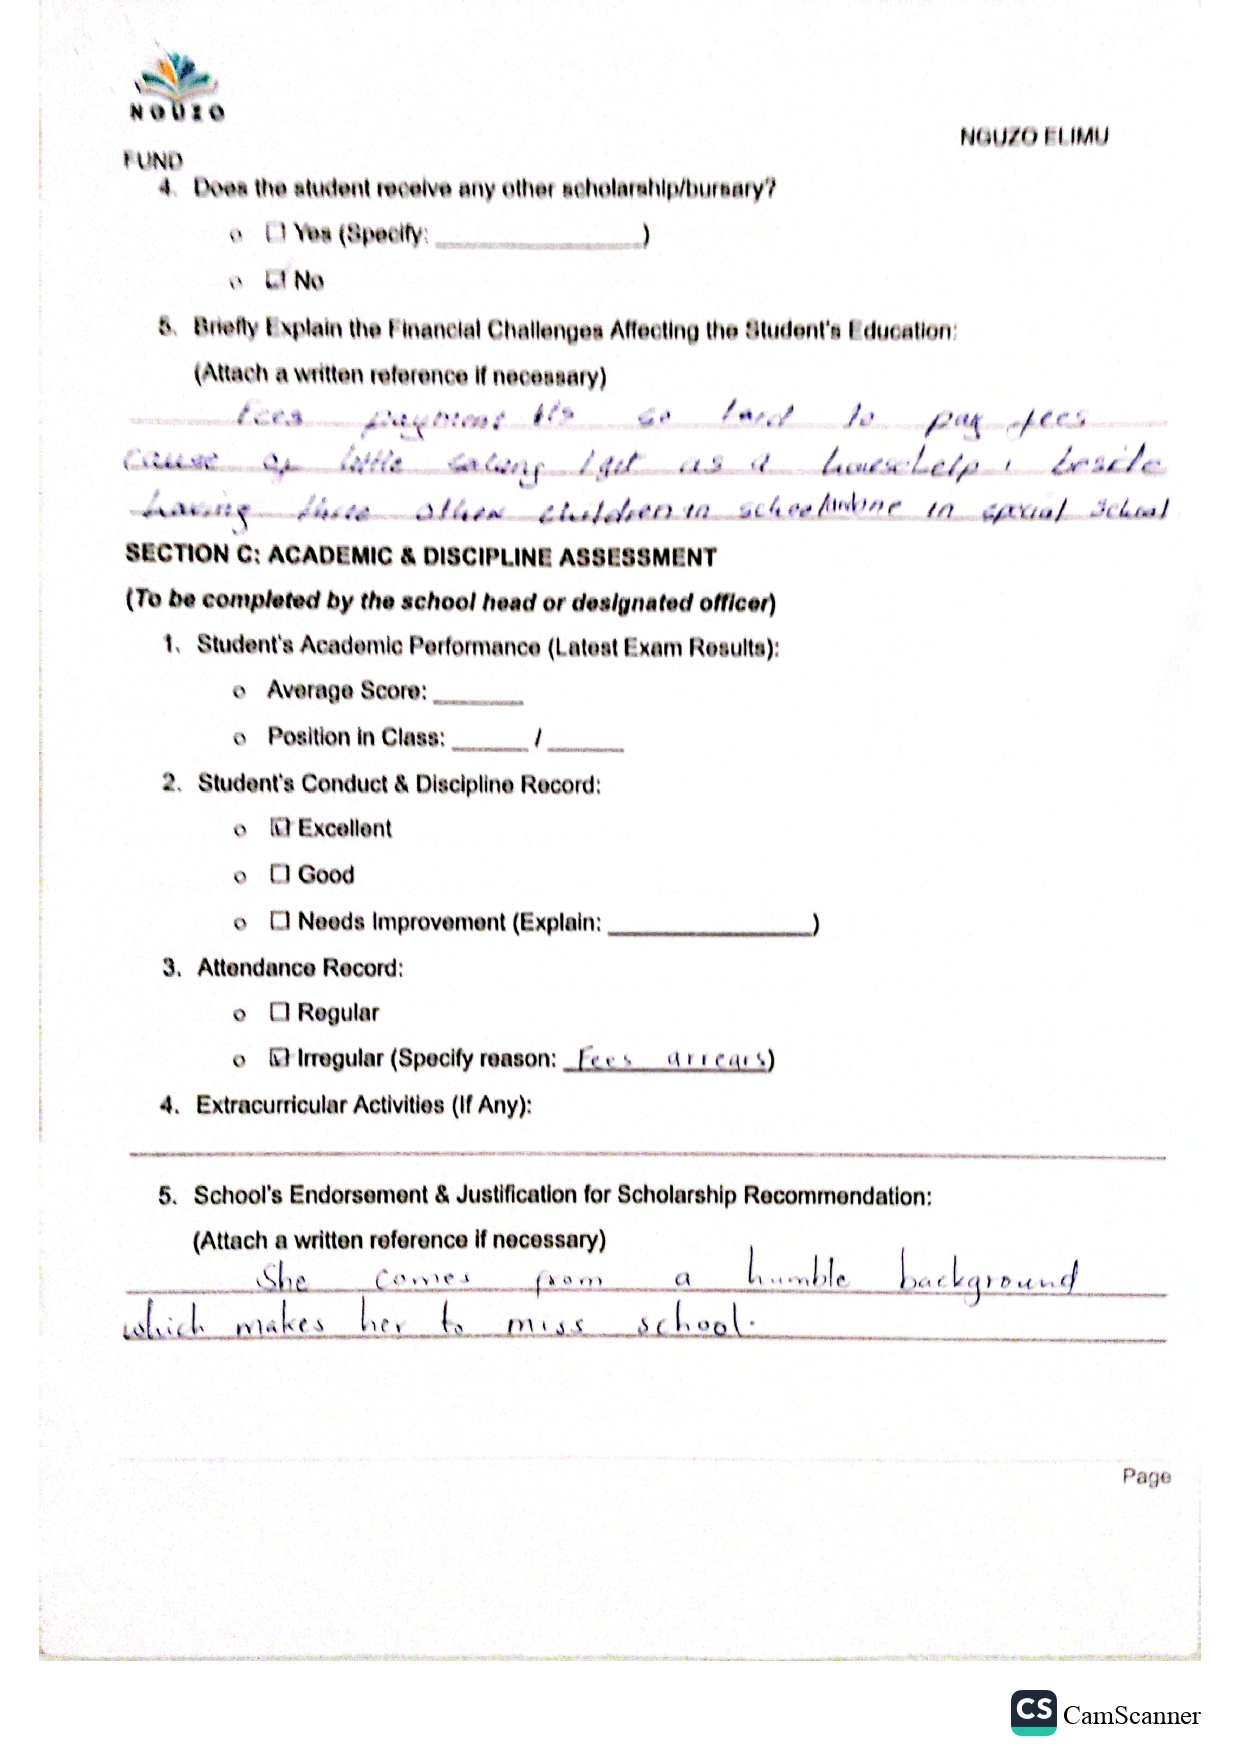 NGUZO
NGUZO ELIMU
FUND
4. Does the student receive any other scholarship/bursary?
o ☐ Yes (Specify: _______________)
o ☐ No
5. Briefly Explain the Financial Challenges Affecting the Student's Education:
(Attach a written reference if necessary)
Fees payment its so hard to pay fees
cause of little salary I get as a househelp, beside
having three other children in school in special school
SECTION C: ACADEMIC & DISCIPLINE ASSESSMENT
(To be completed by the school head or designated officer)
1. Student's Academic Performance (Latest Exam Results):
o Average Score: _______
o Position in Class: ______ / ______
2. Student's Conduct & Discipline Record:
o ☑ Excellent
o ☐ Good
o ☐ Needs Improvement (Explain: _______________)
3. Attendance Record:
o ☐ Regular
o ☑ Irregular (Specify reason: Fees arrears)
4. Extracurricular Activities (If Any):
5. School's Endorsement & Justification for Scholarship Recommendation:
(Attach a written reference if necessary)
She comes from a humble background
which makes her to miss school.
Page
CS CamScanner